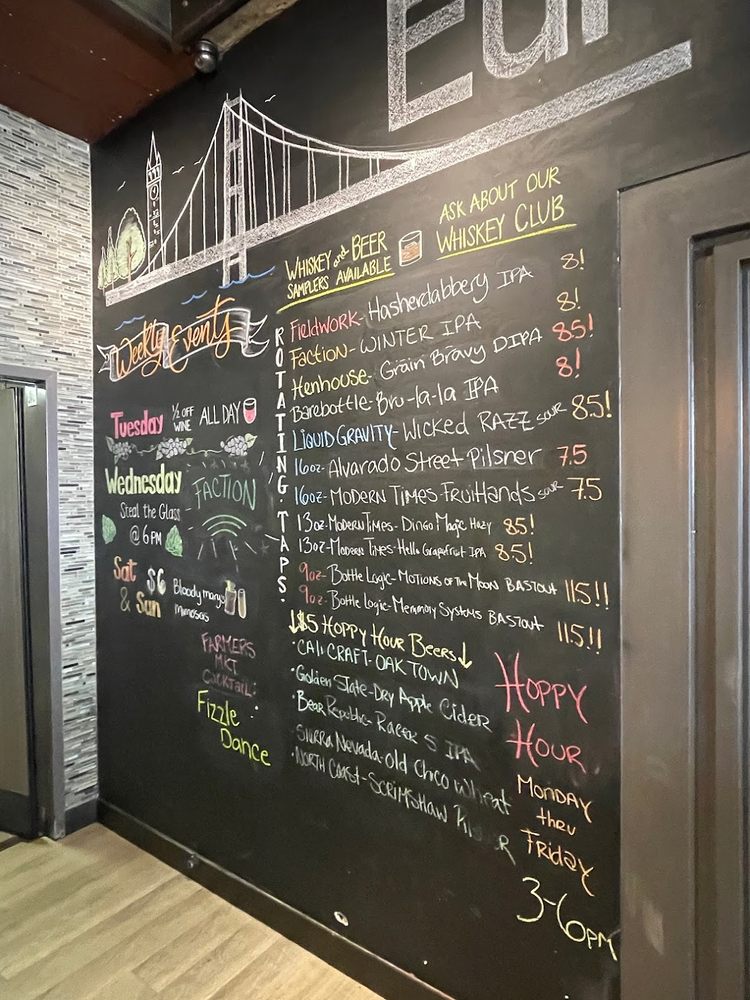 Eur
WHISKEY and BEER
SAMPLERS AVAILABLE
ASK ABOUT OUR
WHISKEY CLUB
Weekly Events
Tuesday ½ OFF WINE ALL DAY
Wednesday
Steal the Glass
@ 6PM
FACTION
Sat & Sun $6 Bloody marys mimosas
FARMERS
MKT
COCKTAIL:
Fizzle
Dance
ROTATING TAPS
Fieldwork- Hasherdabbery IPA 8!
Faction- WINTER IPA 8!
Henhouse- Grain Bravy DIPA 8.5!
Barebottle- Bru-la-la IPA 8!
LIQUID GRAVITY- Wicked RAZZ SOUR 8.5!
16oz- Alvarado Street Pilsner 7.5
16oz- MODERN TIMES FRUITLANDS SOUR 7.5
13oz- Modern Times- Dingo Magic Hazy 8.5!
13oz- Modern Times- Hello Grapefruit IPA 8.5!
9oz- Bottle Logic- MOTIONS OF THE MOON BASTOUT 11.5!!
9oz- Bottle Logic- Memmory Systems BASTOUT 11.5!!
↓$5 HOPPY HOUR BEERS↓
• CALI CRAFT- OAK TOWN
• Golden State- Dry Apple Cider
• Bear Republic- Racer 5 IPA
• Sierra Nevada- old Chico Wheat
• NORTH COAST- SCRIMSHAW
HOPPY
HOUR
MONDAY
thru
Friday
3-6PM